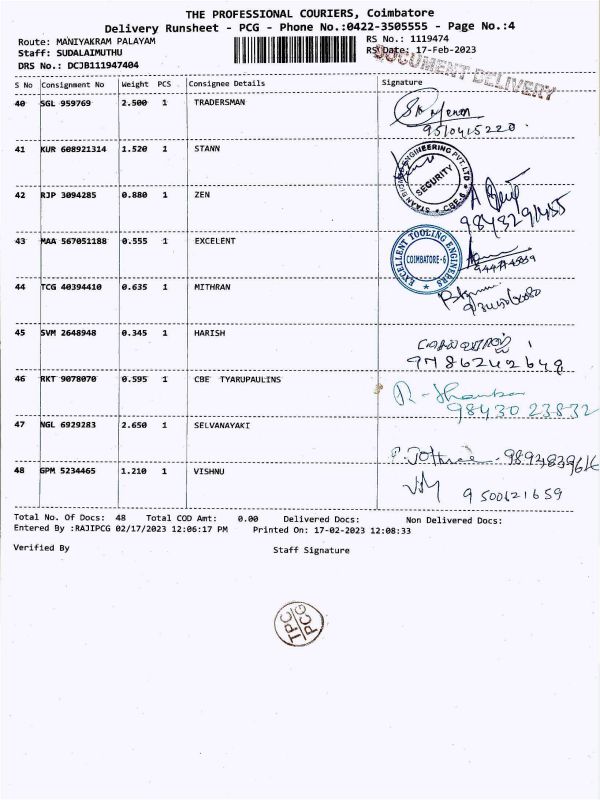 THE PROFESSIONAL COURIERS, Coimbatore
Delivery Runsheet - PCG - Phone No.:0422-3505555 - Page No.:4
Route: MANIYAKRAM PALAYAM RS No.: 1119474
Staff: SUDALAIMUTHU RS Date: 17-Feb-2023
DRS No.: DCJB111947404
DOCUMENT DELIVERY
S No Consignment No Weight PCS Consignee Details Signature
40 SGL 959769 2.500 1 TRADERSMAN
9510415220
41 KUR 608921314 1.520 1 STANN
ENGINEERING PVT. LTD
SECURITY
CBE-6
42 RJP 3094285 0.880 1 ZEN
9843291455
43 MAA 567051188 0.555 1 EXCELENT
EXCELLENT TOOLING ENGINEERS
COIMBATORE-6
44 TCG 40394410 0.635 1 MITHRAN
45 SVM 2648948 0.345 1 HARISH
9786242648
46 RKT 9078070 0.595 1 CBE TYARUPAULINS
98430 23832
47 NGL 6929283 2.650 1 SELVANAYAKI
9894839616
48 GPM 5234465 1.210 1 VISHNU
9500621659
Total No. Of Docs: 48 Total COD Amt: 0.00 Delivered Docs: Non Delivered Docs:
Entered By :RAJIPCG 02/17/2023 12:06:17 PM Printed On: 17-02-2023 12:08:33
Verified By Staff Signature
TPC
PCG